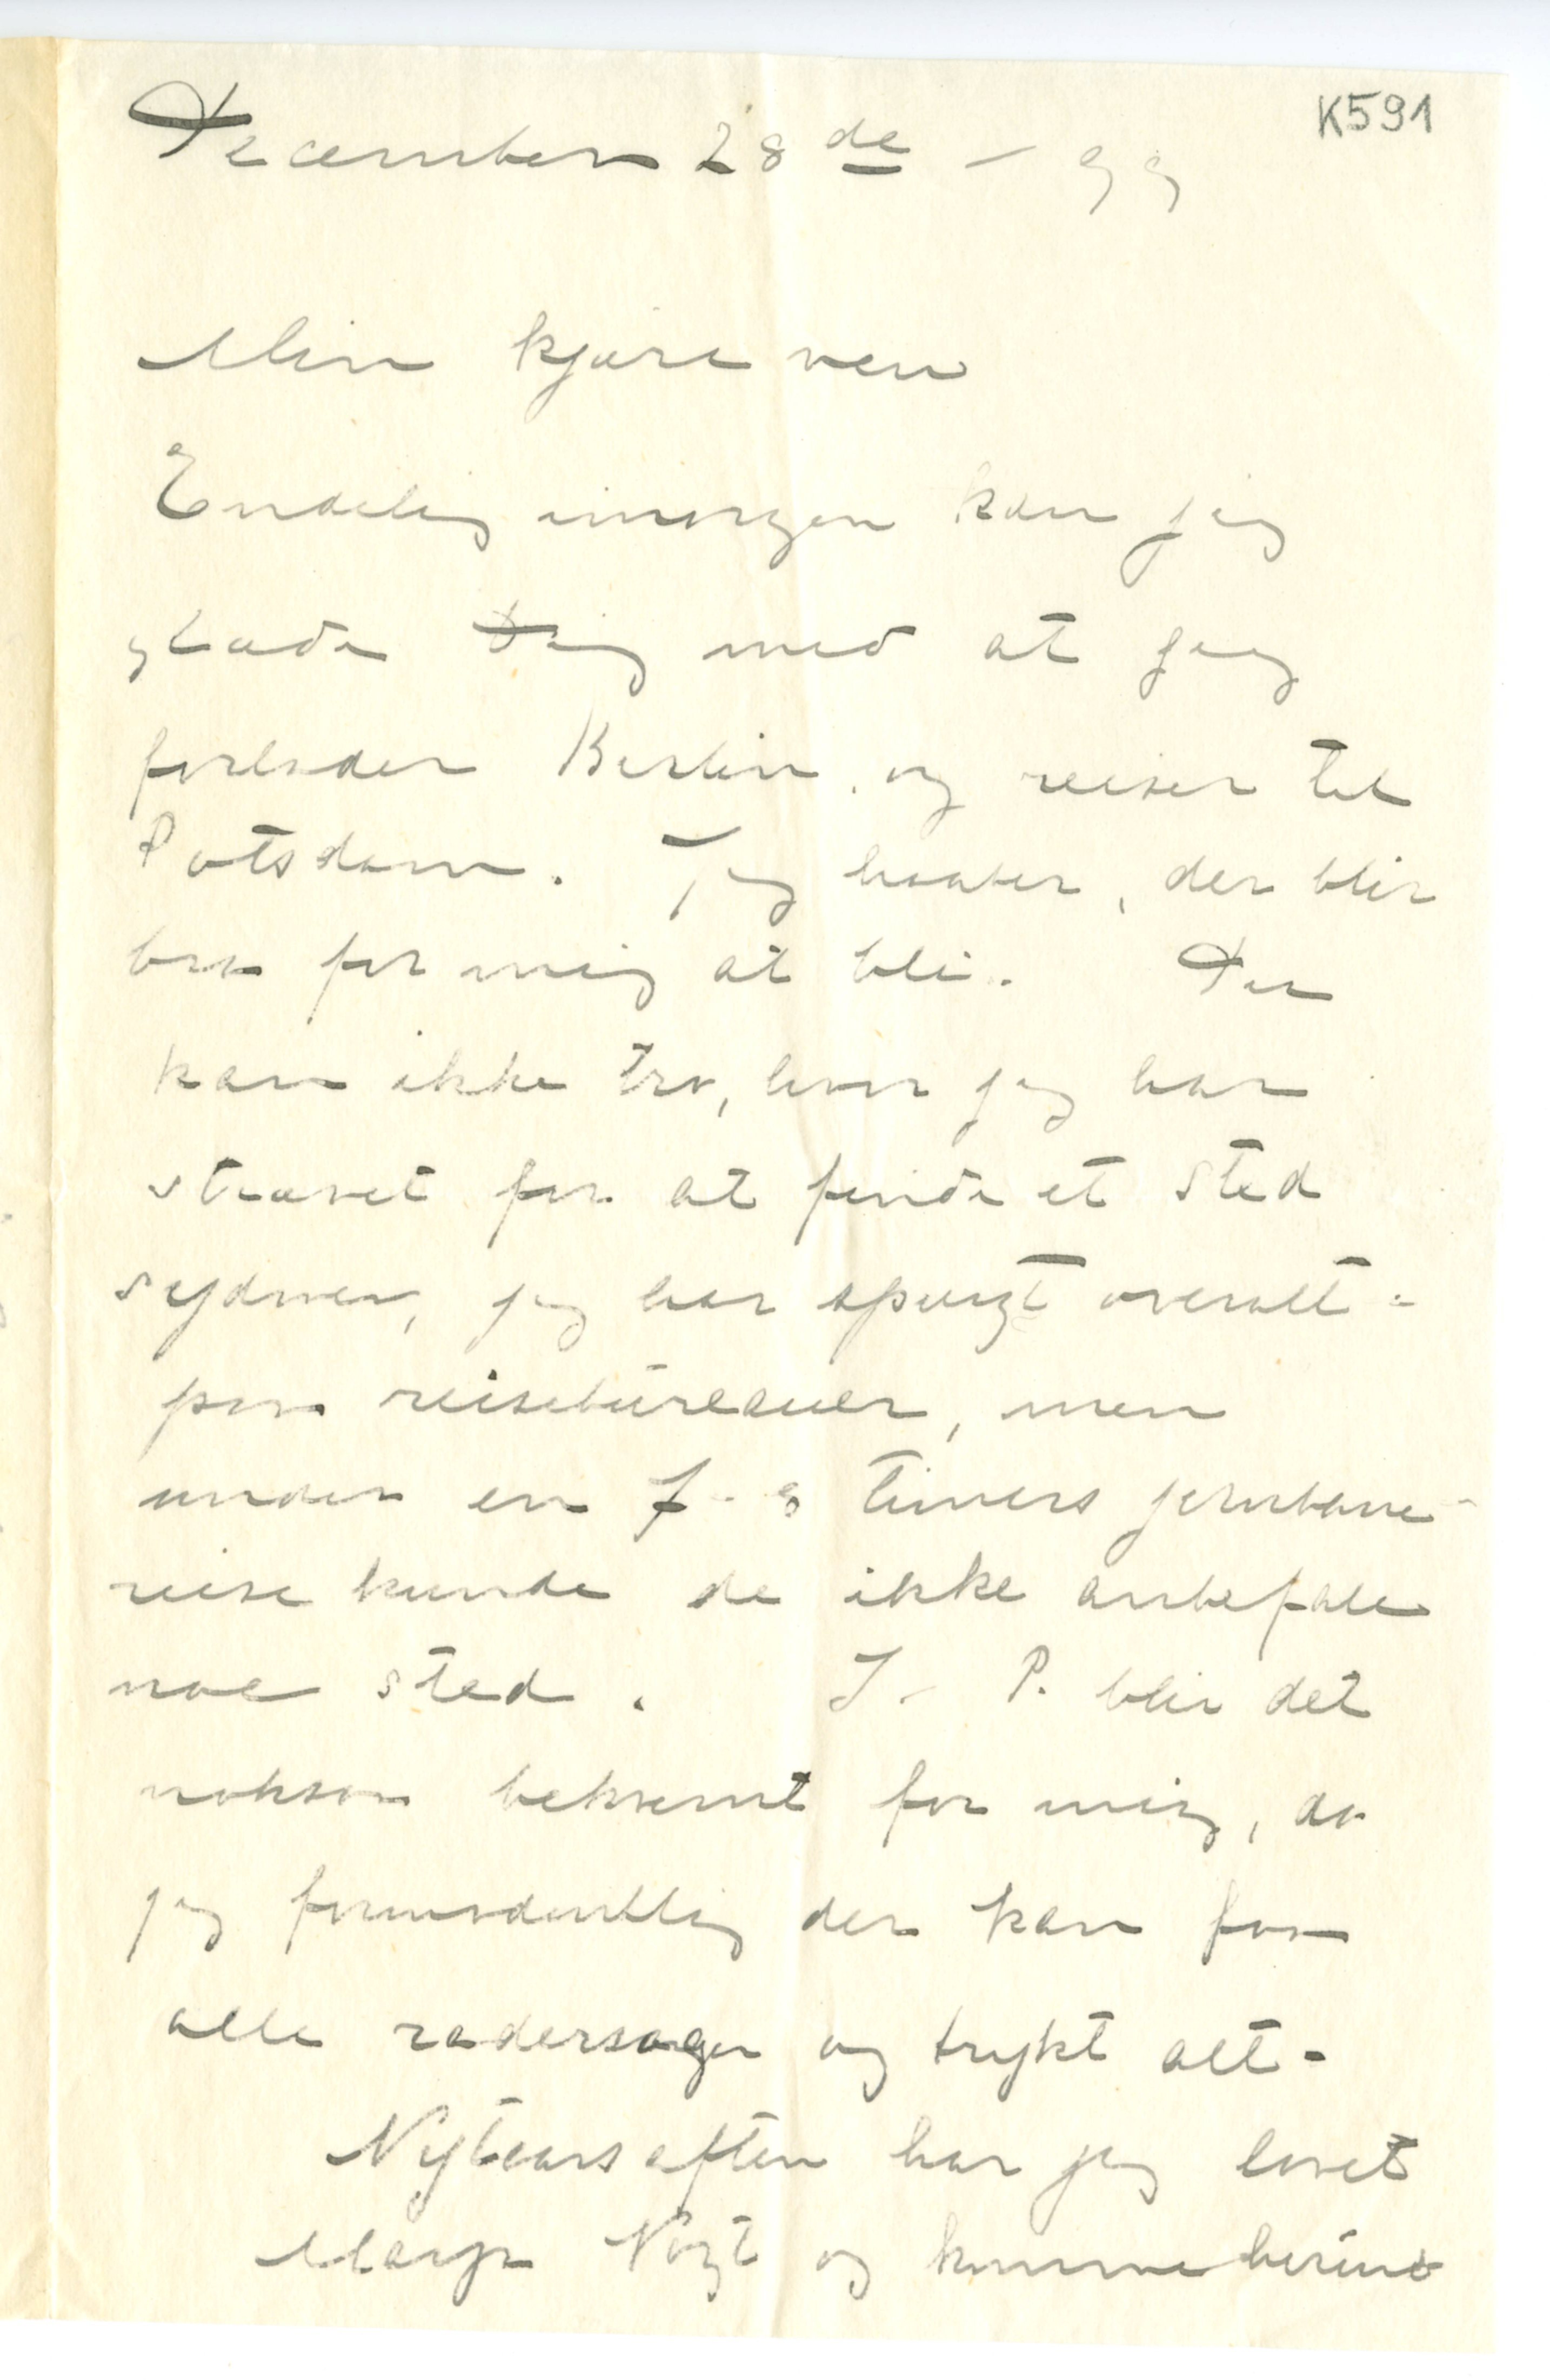 K591
December 28de – 99
Min kjære ven
Endelig imorgen kan jeg
glæde Dig med at jeg
forlader Berlin og reiser til
Potsdam. Jeg haaber, der blir
bra for mig at bli. Du
kan ikke tro, hvor jeg har
strævet for at finde et sted
sydover, jeg har spurgt overalt –
paa reisebüreauer, men
under en 7-8 timers jernbane
reise kunde de ikke anbefale
noe sted. I P. blir det
noksaa bekvemt for mig, da
jeg formodentlig der kan faa
alle radersager og trykt alt –
Nytaarsaften har jeg lovet
Vogt og komme herind